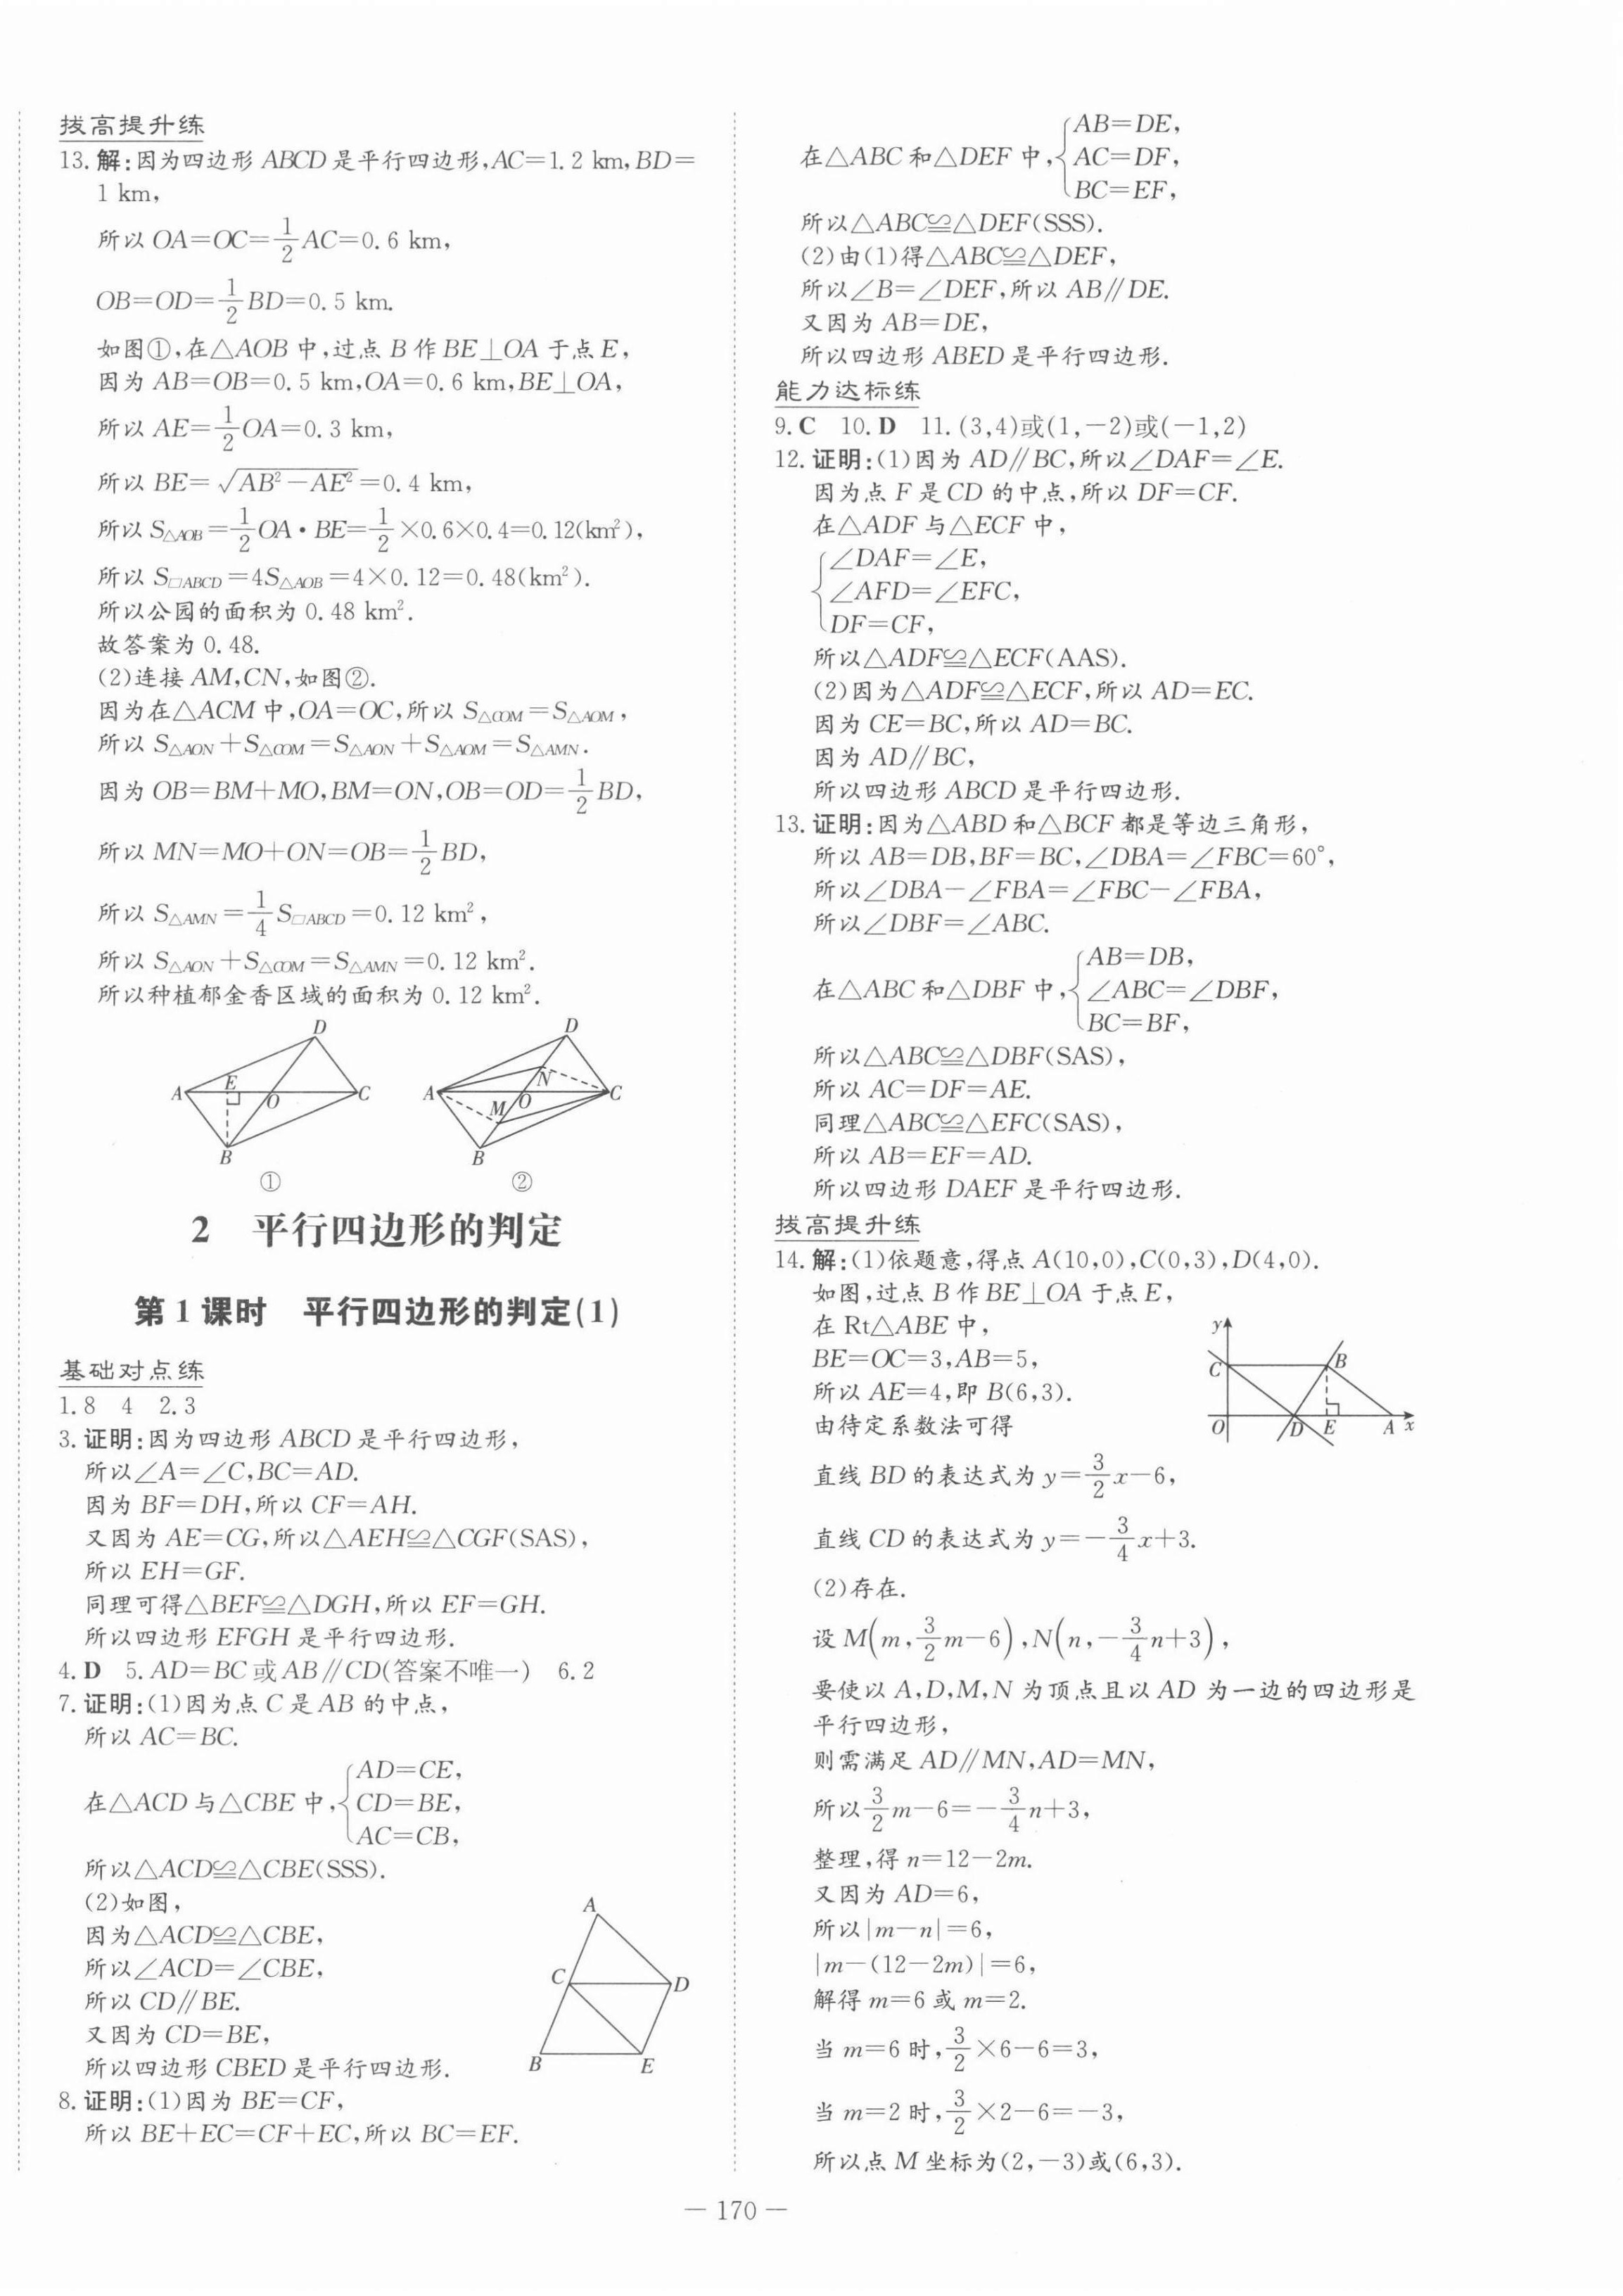 拔高提升练
13.解:因为四边形 ABCD 是平行四边形,AC=1.2 km,BD=
1 km,
所以 OA=OC=1/2AC=0.6 km,
OB=OD=1/2BD=0.5 km.
如图①,在△AOB 中,过点 B 作 BE⊥OA 于点 E,
因为 AB=OB=0.5 km,OA=0.6 km,BE⊥OA,
所以 AE=1/2OA=0.3 km,
所以 BE=√(AB²-AE²)=0.4 km,
所以 S△AOB=1/2OA·BE=1/2×0.6×0.4=0.12(km²),
所以 S▱ABCD=4S△AOB=4×0.12=0.48(km²).
所以公园的面积为 0.48 km².
故答案为 0.48.
(2)连接 AM,CN,如图②.
因为在△ACM 中,OA=OC,所以 S△COM=S△AOM,
所以 S△AON+S△COM=S△AON+S△AOM=S△AMN.
因为 OB=BM+MO,BM=ON,OB=OD=1/2BD,
所以 MN=MO+ON=OB=1/2BD,
所以 S△AMN=1/4S▱ABCD=0.12 km²,
所以 S△AON+S△COM=S△AMN=0.12 km².
所以种植郁金香区域的面积为 0.12 km².
D
A E O C
B
①
D
A N M O C
B
②
2 平行四边形的判定
第1课时 平行四边形的判定(1)
基础对点练
1.8 4 2.3
3.证明:因为四边形 ABCD 是平行四边形,
所以∠A=∠C,BC=AD.
因为 BF=DH,所以 CF=AH.
又因为 AE=CG,所以△AEH≌△CGF(SAS),
所以 EH=GF.
同理可得△BEF≌△DGH,所以 EF=GH.
所以四边形 EFGH 是平行四边形.
4.D 5.AD=BC 或 AB∥CD(答案不唯一) 6.2
7.证明:(1)因为点 C 是 AB 的中点,
所以 AC=BC.
在△ACD 与△CBE 中,{AD=CE,
CD=BE,
AC=CB,
所以△ACD≌△CBE(SSS).
(2)如图,
因为△ACD≌△CBE,
所以∠ACD=∠CBE,
所以 CD∥BE.
又因为 CD=BE,
所以四边形 CBED 是平行四边形.
A
C D
B E
8.证明:(1)因为 BE=CF,
所以 BE+EC=CF+EC,所以 BC=EF.
在△ABC 和△DEF 中,{AB=DE,
AC=DF,
BC=EF,
所以△ABC≌△DEF(SSS).
(2)由(1)得△ABC≌△DEF,
所以∠B=∠DEF,所以 AB∥DE.
又因为 AB=DE,
所以四边形 ABED 是平行四边形.
能力达标练
9.C 10.D 11.(3,4)或(1,-2)或(-1,2)
12.证明:(1)因为 AD∥BC,所以∠DAF=∠E.
因为点 F 是 CD 的中点,所以 DF=CF.
在△ADF 与△ECF 中,
{∠DAF=∠E,
∠AFD=∠EFC,
DF=CF,
所以△ADF≌△ECF(AAS).
(2)因为△ADF≌△ECF,所以 AD=EC.
因为 CE=BC,所以 AD=BC.
因为 AD∥BC,
所以四边形 ABCD 是平行四边形.
13.证明:因为△ABD 和△BCF 都是等边三角形,
所以 AB=DB,BF=BC,∠DBA=∠FBC=60°,
所以∠DBA-∠FBA=∠FBC-∠FBA,
所以∠DBF=∠ABC.
在△ABC 和△DBF 中,{AB=DB,
∠ABC=∠DBF,
BC=BF,
所以△ABC≌△DBF(SAS),
所以 AC=DF=AE.
同理△ABC≌△EFC(SAS),
所以 AB=EF=AD.
所以四边形 DAEF 是平行四边形.
拔高提升练
14.解:(1)依题意,得点 A(10,0),C(0,3),D(4,0).
如图,过点 B 作 BE⊥OA 于点 E,
在 Rt△ABE 中,
BE=OC=3,AB=5,
所以 AE=4,即 B(6,3).
由待定系数法可得
y
C B
O D E A x
直线 BD 的表达式为 y=3/2x-6,
直线 CD 的表达式为 y=-3/4x+3.
(2)存在.
设 M(m,3/2m-6),N(n,-3/4n+3),
要使以 A,D,M,N 为顶点且以 AD 为一边的四边形是
平行四边形,
则需满足 AD∥MN,AD=MN,
所以3/2m-6=-3/4n+3,
整理,得 n=12-2m.
又因为 AD=6,
所以|m-n|=6,
|m-(12-2m)|=6,
解得 m=6 或 m=2.
当 m=6 时,3/2×6-6=3,
当 m=2 时,3/2×2-6=-3,
所以点 M 坐标为(2,-3)或(6,3).
— 170 —